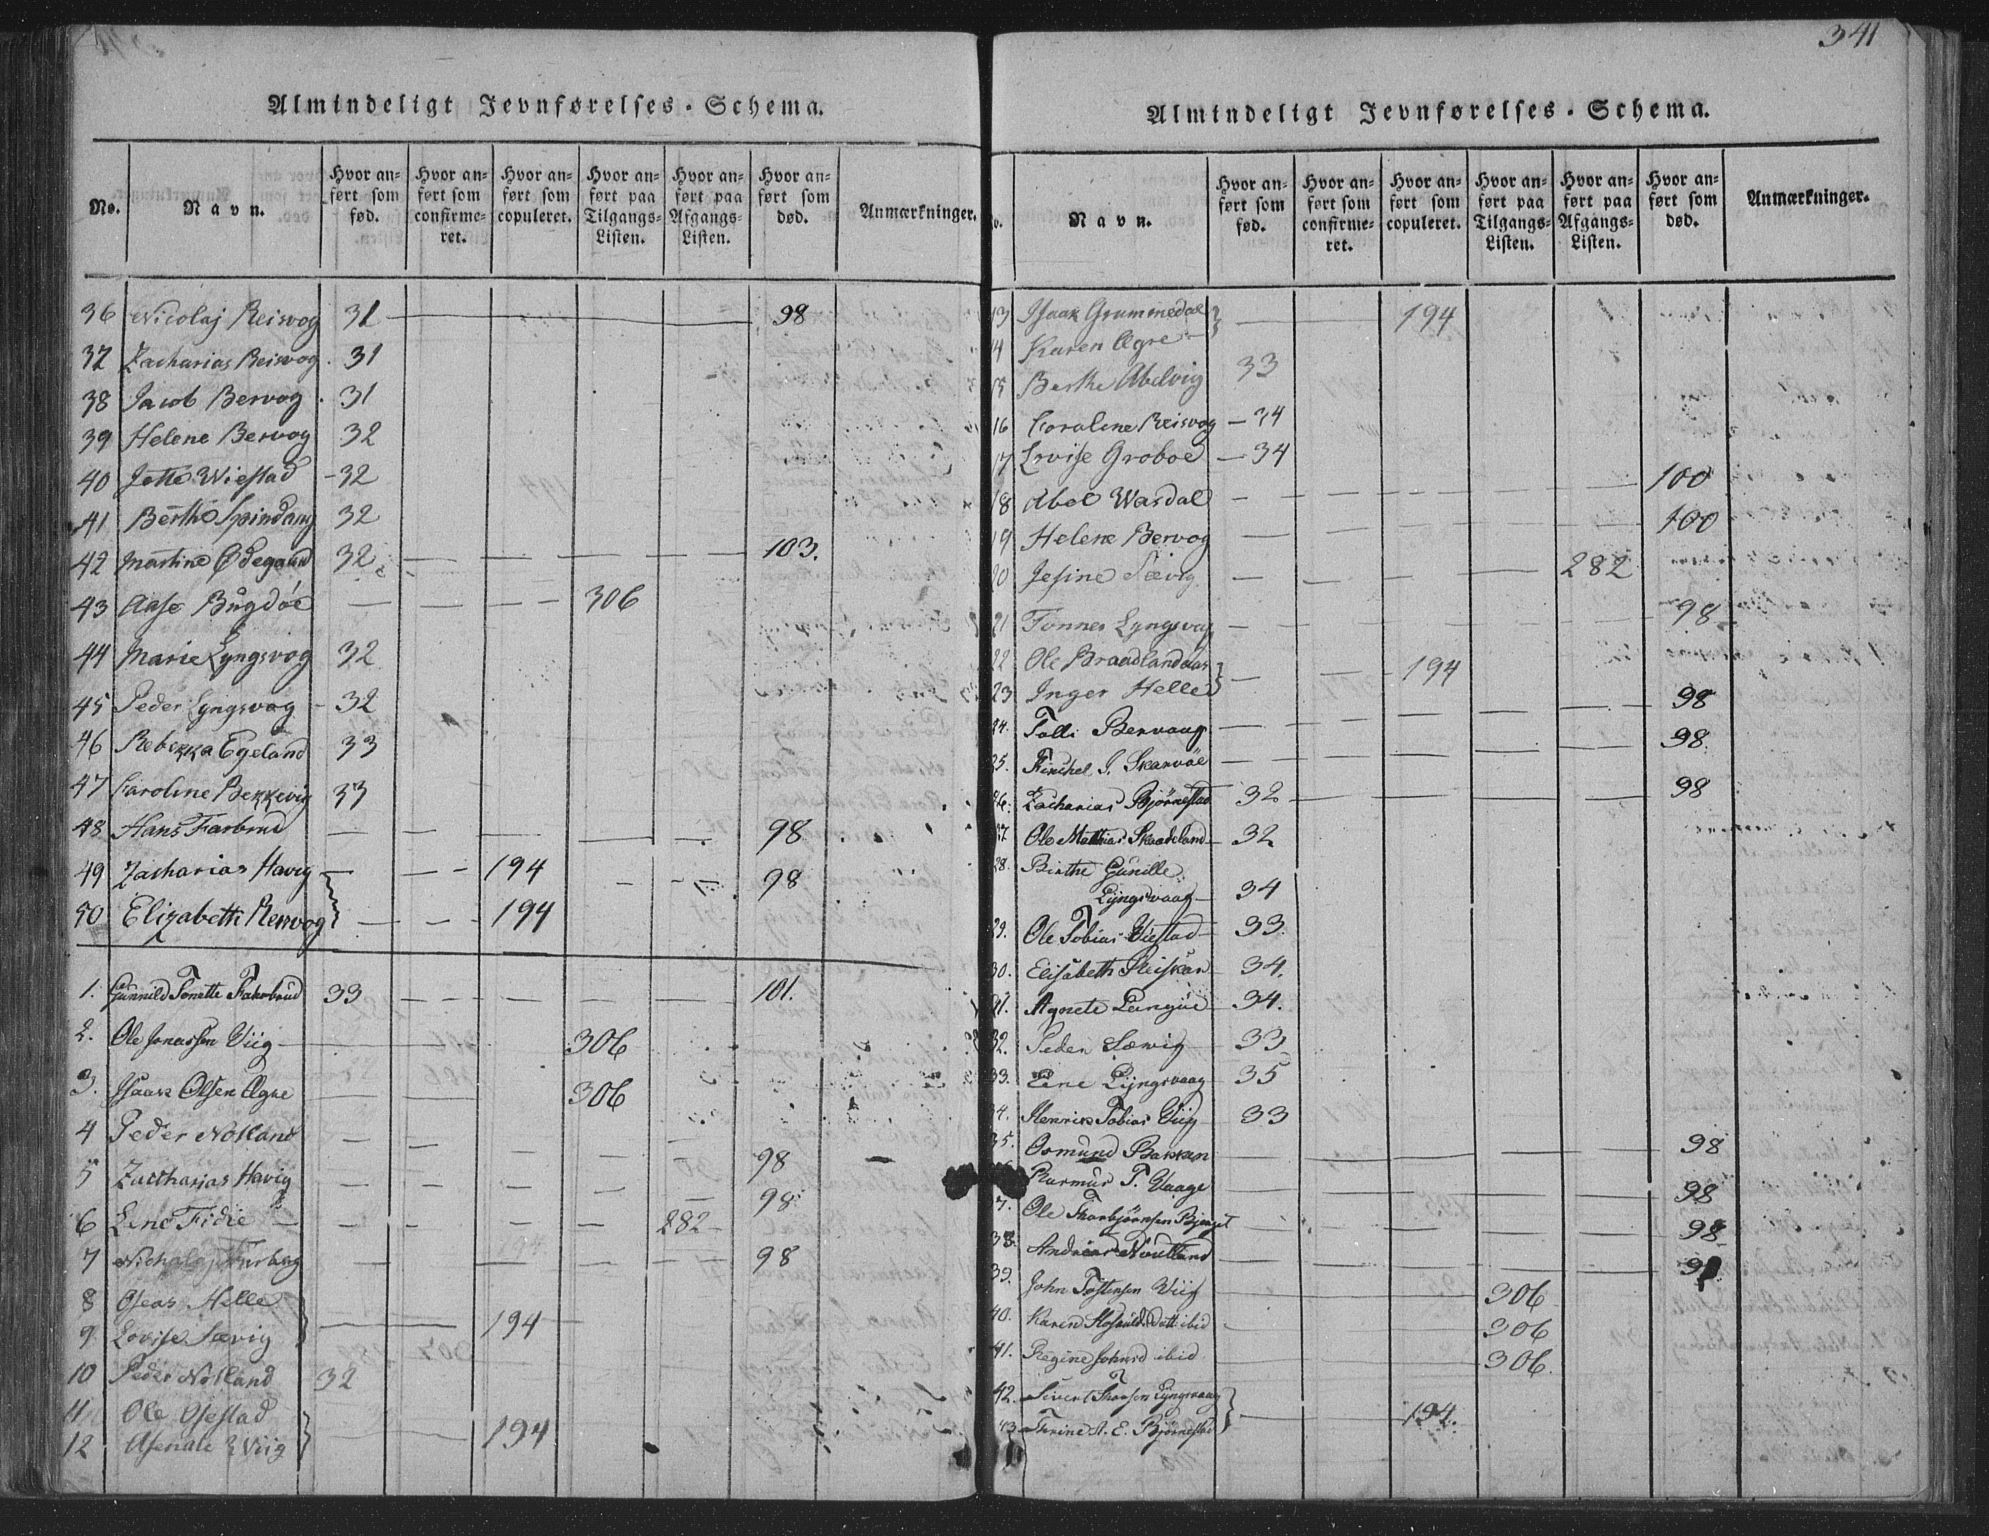 341
Almindeligt Jevnførelses-Schema.
No. Navn. Hvor anført som fød. Hvor anført som confirmeret. Hvor anført som copuleret. Hvor anført paa Tilgangs-Listen. Hvor anført paa Afgangs-Listen. Hvor anført som død. Anmærkninger.
36 Nicolaj Reisvog 31 98
37 Zacharias Reisvog 31
38 Jacob Bervog 31
39 Helene Bervog 32
40 Jette Wiestad 32
41 Berthe Spindang 32
42 Martine Ødegaard 32 103.
43 Aase Bugdøe 306
44 Marie Lyngsvog 32
45 Peder Lyngsvog 32
46 Rebekka Egeland 33
47 Caroline Bekkevig 33
48 Hans Farbrud 98
49 Zacharias Havig 194 98
50 Elizabeth Rersvog 194
1. Gunnild Tonette Fahrbrud 33 101.
2. Ole Jonassen Viig 306
3. Isaak Olsen Egne 306
4 Peder Nokland 98
5 Zacharias Havig 98
6 Lene Fidie 282
7 Nicholaj 98
8 Oseas Helle
9 Lovise Sævig 194
10 Peder Nokland 32
11 Ole Osestad
12 Asenale Wiig 194
Almindeligt Jevnførelses-Schema.
No. Navn. Hvor anført som fød. Hvor anført som confirmeret. Hvor anført som copuleret. Hvor anført paa Tilgangs-Listen. Hvor anført paa Afgangs-Listen. Hvor anført som død. Anmærkninger.
13 Isaak Grummedal 194
14 Karen Egre
15 Berthe Abelvig 33
16 Coraline Reisvog 34
17 Lovise Groboe 34
18 Abel Wardal 100
19 Helene Bervog 100
20 Jesine Sævig 282
21 Tønnes Lyngsvog 98
22 Ole Braadlandaas 194
23 Inger Helle
24. Tolli Bervaag 98
25. J. Skarvøe 98.
26. Zacharias Bjørnestad 32 98
27. Ole Mathias Skaadeland 32
28. Birthe Gunille
Lyngsvaag 34
29. Ole Tobias Viestad 33
30. Elisabeth Reiskar 34.
31. Agnete Langøe 34.
32. Peder Sævig 33
33. Eline Lyngsvaag 35
34. Henrik Tobias Viig 33
35. Osmund Bakken 98
Rasmus T. Vaage 98
7. Ole Thorbjørnsen Bjerget 98
38. Andreas Noutland
39. John Tostensen Viig 306
40. Karen ibid 306
41. Regine ibid 306.
42. Sivert Thorsen Lyngsvaag
43 Thrine A. E. Bjørnestad 194.